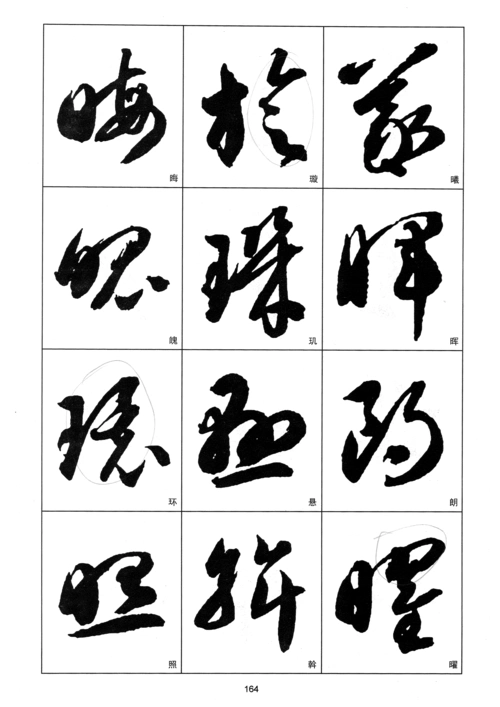 曦
晖
朗
曜
璇
玑
悬
斡
晦
魄
环
照
164